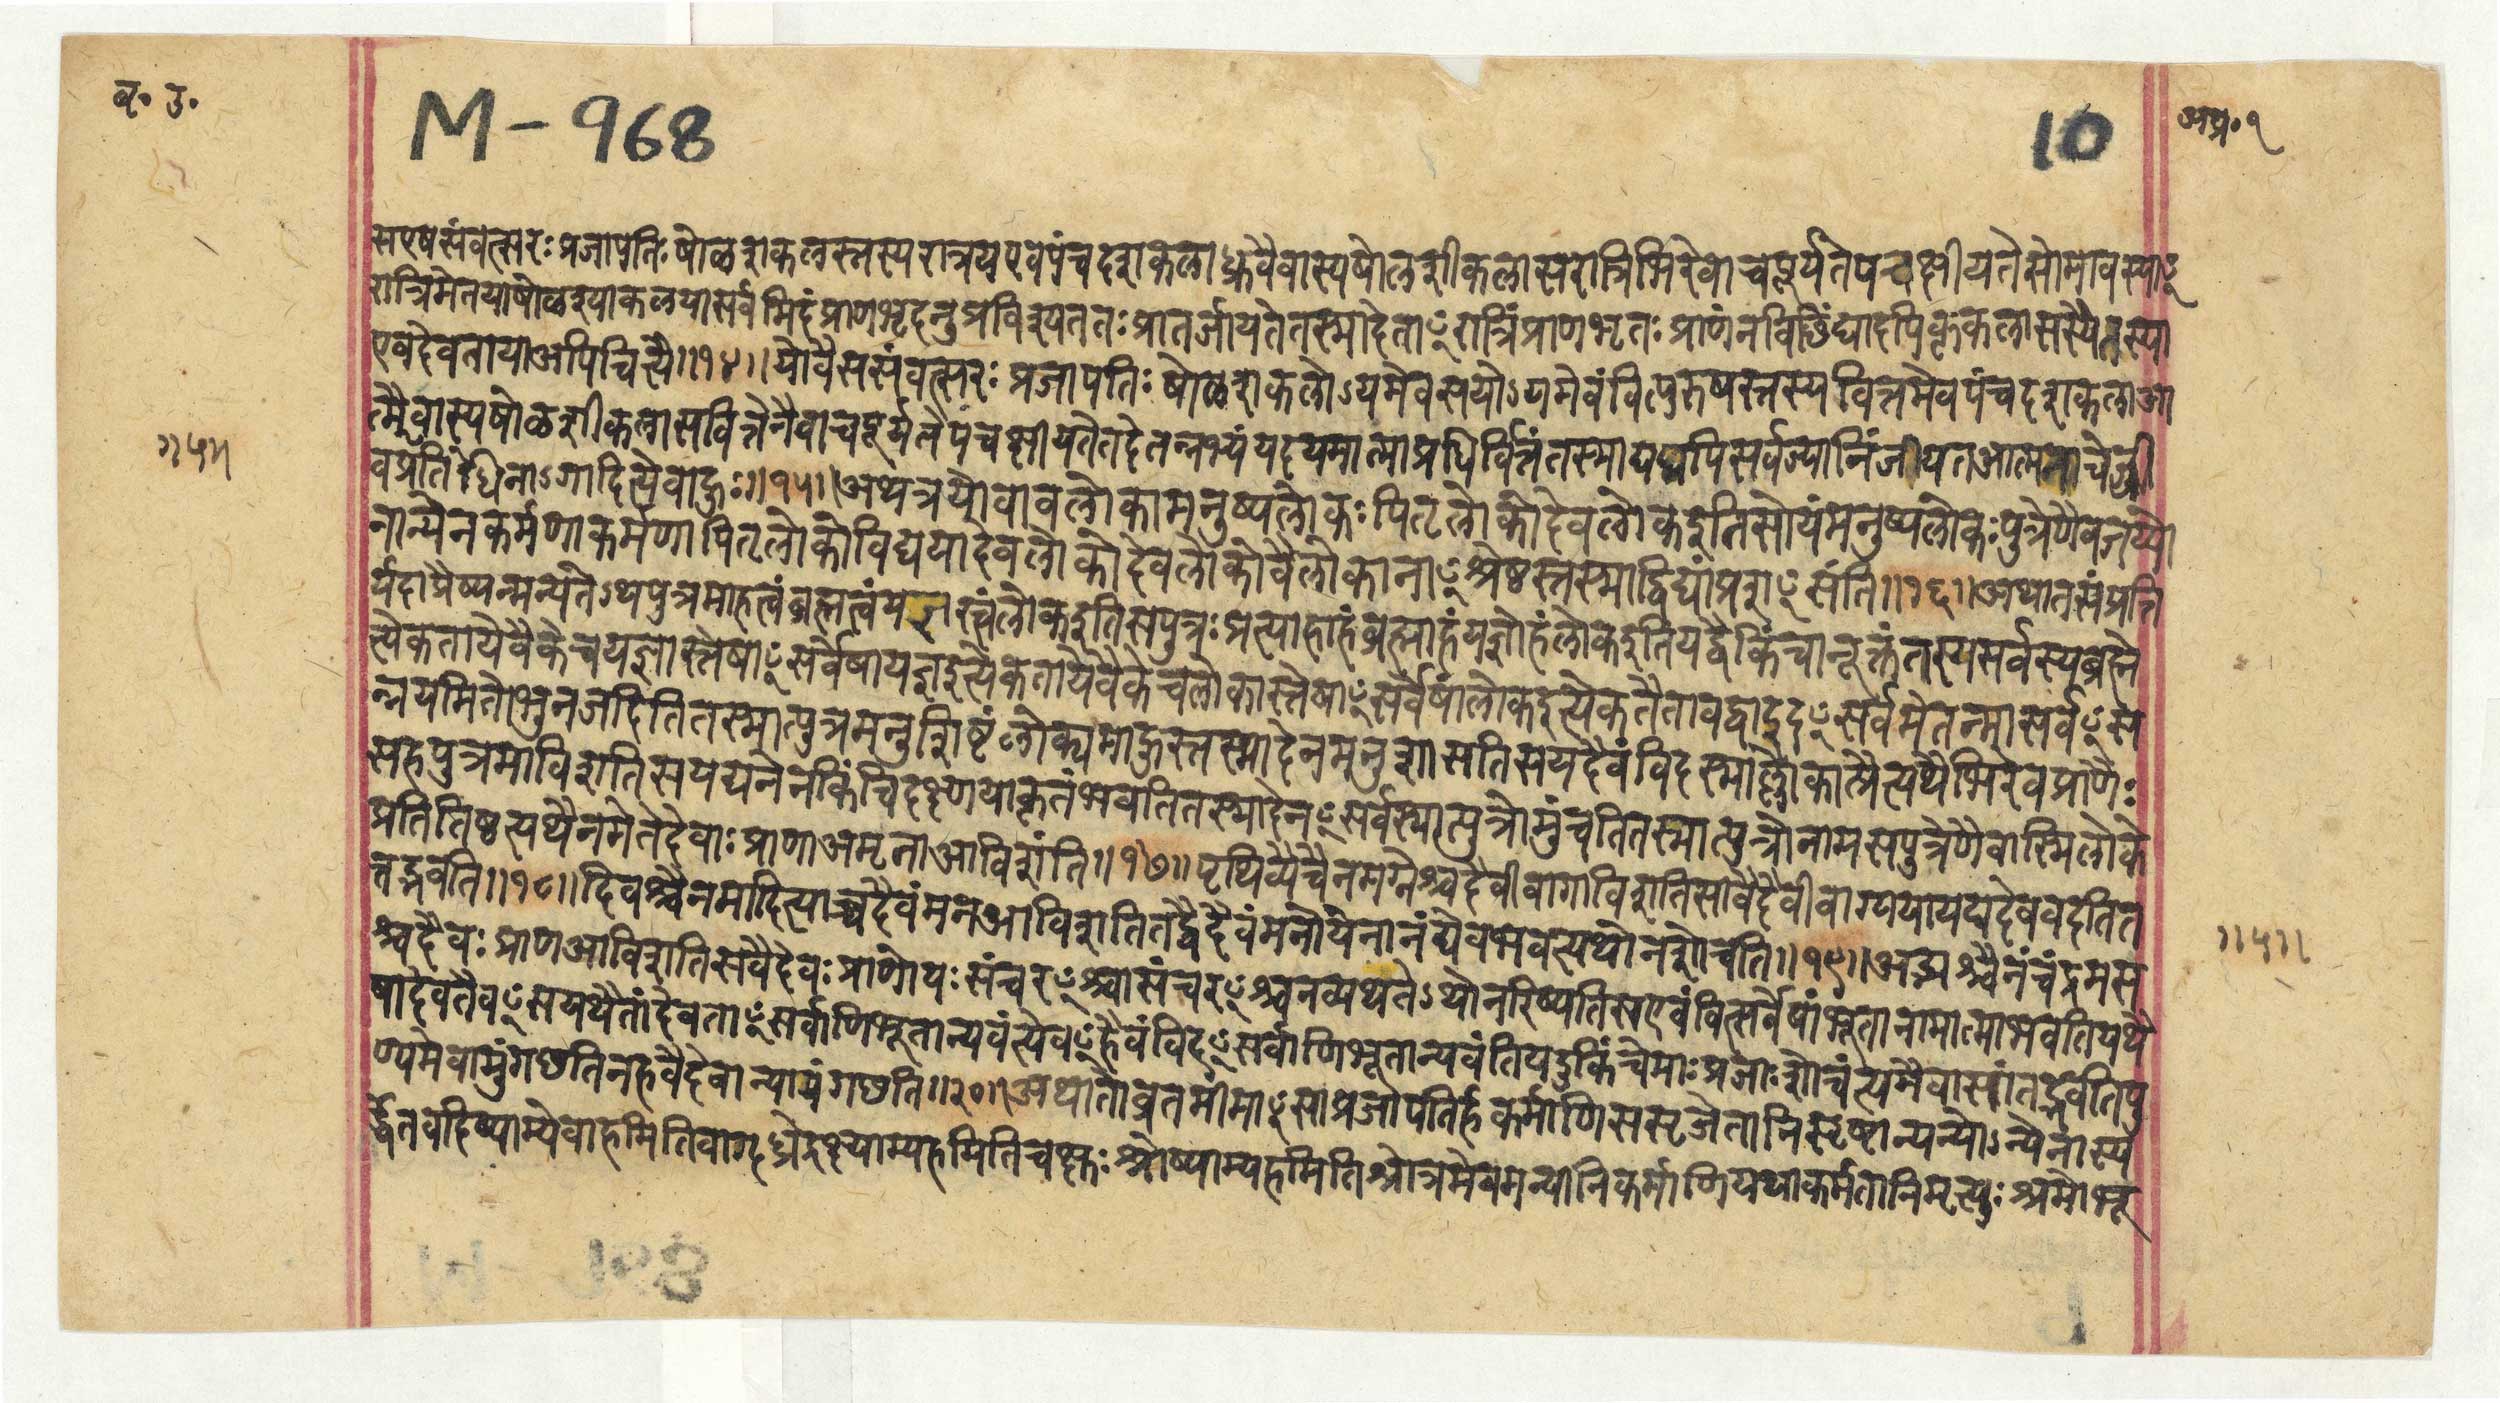 बृ. उ.
M-968
10
अध्या. १
सएषसंवत्सरः प्रजापतिः षोळशकलस्तस्यरात्रयएवपंचदशकलाध्रुवैवास्यषोलशीकलासरात्रिभिरेवाचपूर्यतेपचक्षीयतेसोमावस्याꣳ
रात्रिमेतयाषोळश्याकलयासर्वमिदंप्राणभृदनुप्रविश्यततः प्रातर्जायतेतस्मादेताꣳरात्रिंप्राणभृतः प्राणंनविछिंद्यादपिकृकलासस्यैतस्या
एवदेवतायाअपिचित्यै॥१४॥योवैससंवत्सरः प्रजापतिः षोळशकलोऽयमेवसयोऽयमेवंवित्पुरुषस्तस्यवित्तमेवपंचदशकलाआ
त्मैवास्यषोळशीकलासवित्तेनैवाचपूर्यतेपंचक्षीयतेतदेतन्नभ्यंयदयमात्माप्रधिर्वित्तंतस्माद्यद्यपिसर्वज्यानिंजीयतआत्मनाचेज्जी
वप्रतिंधिनाऽगादित्येवाहुः॥१५॥अथत्रयोवावलोकामनुष्यलोकः पितृलोकोदेवलोकइतिसोयंमनुष्यलोकः पुत्रेणैवजय्यो
नान्येनकर्मणाकर्मणापितृलोकोविद्ययादेवलोकोदेवलोकोवैलोकानाꣳश्रेष्ठस्तस्माद्विद्यांप्रशꣳसंति॥१६॥अथातसंप्रत्ति
र्यदाप्रैष्यन्मन्यतेऽथपुत्रमाहत्वंब्रह्मत्वंयज्ञस्त्वंलोकइतिसपुत्रः प्रत्याहाहंब्रह्माहंयज्ञोहंलोकइतियद्वैकिंचानूक्तंतस्यसर्वस्यब्रह्मे
त्येकतायेवैकेचयज्ञास्तेषाꣳसर्वेषांयज्ञइत्येकतायेवैकेचलोकास्तेषाꣳसर्वेषांलोकइत्येकतैतावद्वाइदꣳसर्वमेतन्मासर्वꣳस
न्नयमितोभुनजदितितस्मात्पुत्रमनुशिष्टंलोक्यमाहुस्तस्मादेनमनुशासतिसयदैवंविदस्माल्लोकात्प्रैत्यथैभिरेवप्राणैः
सहपुत्रमाविशतिसयद्यनेनकिंचिदक्ष्णयाकृतंभवतितस्मादेनꣳसर्वस्मात्पुत्रोमुंचतितस्मात्पुत्रोनामसपुत्रेणैवास्मिंलोके
प्रतितिष्ठत्यथैनमेतेदेवाः प्राणाअमृताआविशंति॥१७॥पृथिव्यैचैनमग्नेश्चदैवीवागाविशतिसावैदैवीवाग्ययायद्यदेववदतित
त्तद्भवति॥१८॥दिवश्चैनमादित्याच्चदैवंमनआविशतितद्वैदैवंमनोयेनानंद्येवभवत्यथोनशोचति॥१९॥अद्भ्यश्चैनंचंद्रमस
श्चदैवः प्राणआविशतिसवैदैवः प्राणोयः संचरꣳश्चासंचरꣳश्चनव्यथतेऽथोनरिष्यतिसएवंवित्सर्वेषांभूतानामात्माभवतियथै
षादेवतैवꣳसयथैतांदेवताꣳसर्वाणिभूतान्यवंत्येवꣳहैवंविदꣳसर्वाणिभूतान्यवंतियदुकिंचेमाः प्रजाः शोचंत्यमैवासांतद्भवतिपु
ण्यमेवामुंगछतिनहवैदेवान्पापंगछति॥२०॥अथातोव्रतमीमाꣳसाप्रजापतिर्हकर्माणिससृजेतानिसृष्टान्यन्योऽन्येनास्प
र्द्धंतवदिष्याम्येवाहमितिवाग्दध्रेद्रक्ष्याम्यहमितिचक्षुः श्रोष्याम्यहमितिश्रोत्रमेवमन्यानिकर्माणियथाकर्मतानिमृत्युः श्रमोभू
॥५॥
॥५॥